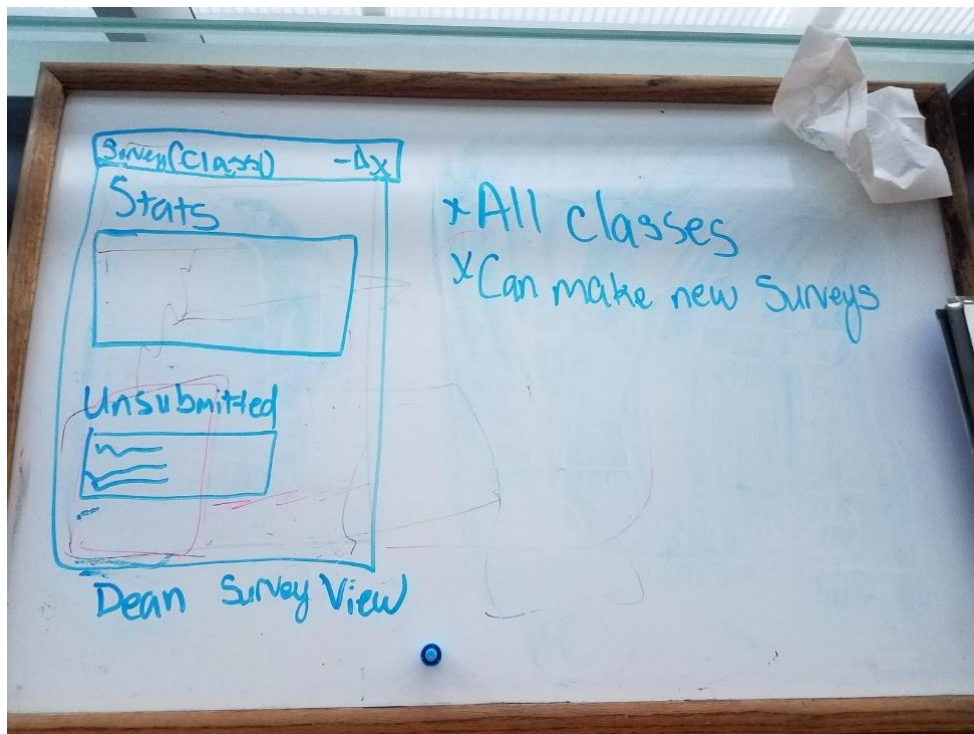 Survey(Class) -Δx
Stats
Unsubmitted
Dean Survey View
xAll classes
xCan make new Surveys